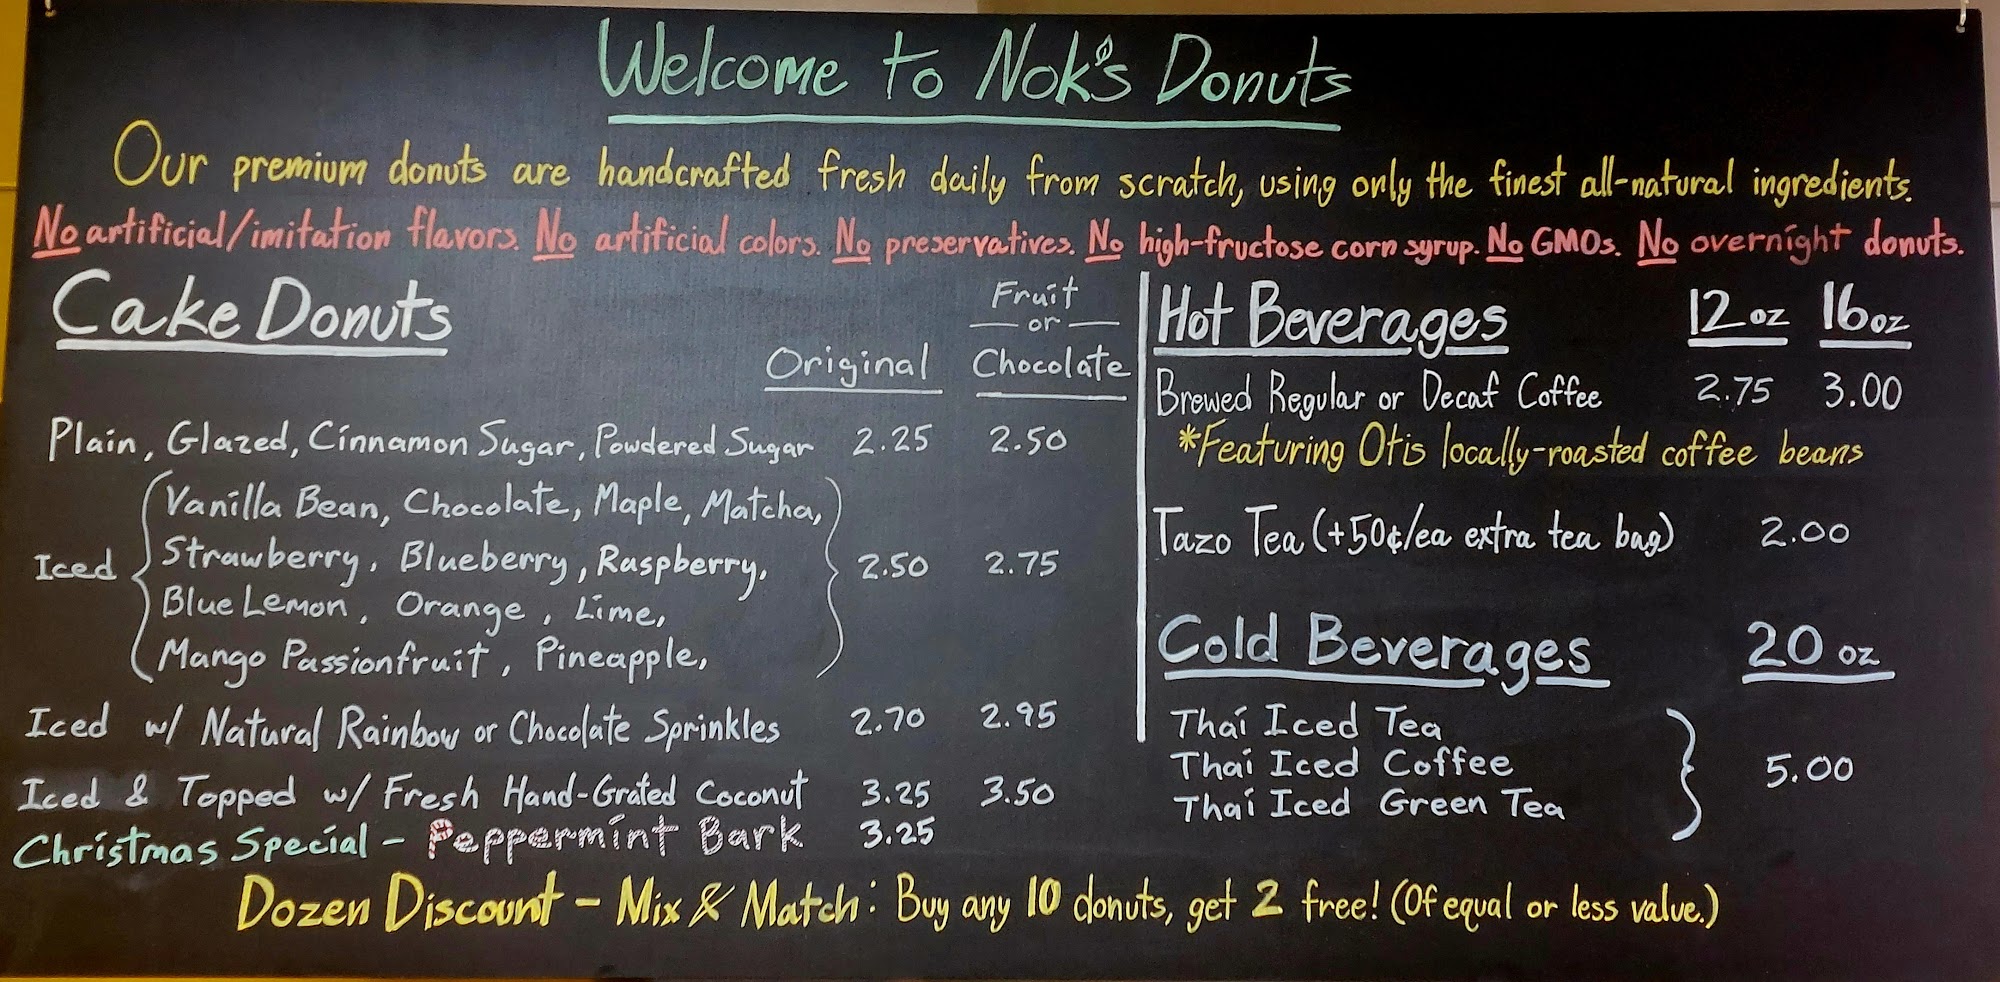 Welcome to Nok's Donuts
Our premium donuts are handcrafted fresh daily from scratch, using only the finest all-natural ingredients.
No artificial/imitation flavors. No artificial colors. No preservatives. No high-fructose corn syrup. No GMOs. No overnight donuts.
Cake Donuts
Original
Fruit
or
Chocolate
Plain, Glazed, Cinnamon Sugar, Powdered Sugar 2.25 2.50
Vanilla Bean, Chocolate, Maple, Matcha,
Iced Strawberry, Blueberry, Raspberry, 2.50 2.75
Blue Lemon, Orange, Lime,
Mango Passionfruit, Pineapple,
Iced w/ Natural Rainbow or Chocolate Sprinkles 2.70 2.95
Iced & Topped w/ Fresh Hand-Grated Coconut 3.25 3.50
Christmas Special - Peppermint Bark 3.25
Hot Beverages 12 oz 16 oz
Brewed Regular or Decaf Coffee 2.75 3.00
*Featuring Otis locally-roasted coffee beans
Tazo Tea (+50¢/ea extra tea bag) 2.00
Cold Beverages 20 oz
Thai Iced Tea
Thai Iced Coffee 5.00
Thai Iced Green Tea
Dozen Discount - Mix & Match: Buy any 10 donuts, get 2 free! (Of equal or less value.)